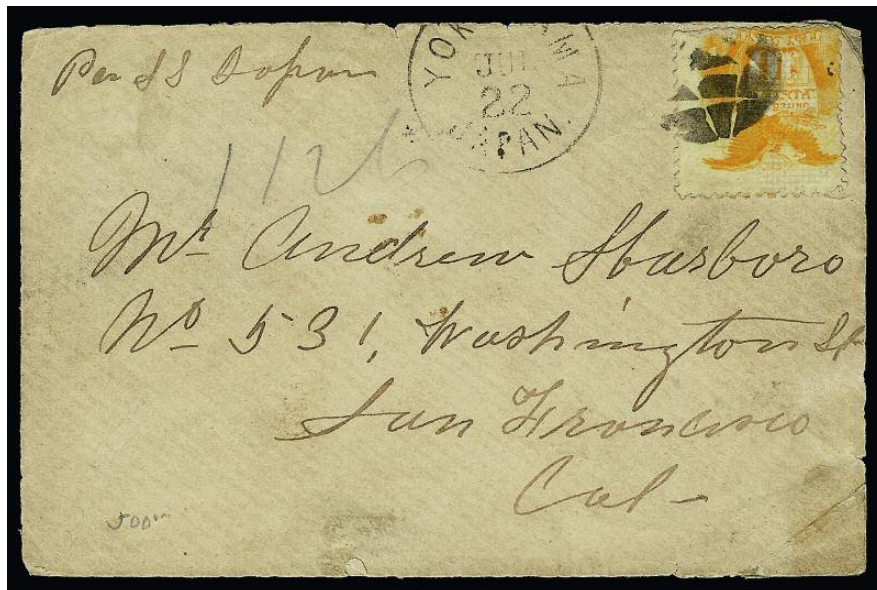 Per SS Japan
YOKOHAMA
JUL
22
JAPAN.
Mr Andrew Sbarboro
No 531, Washington St
San Francisco
Cal-